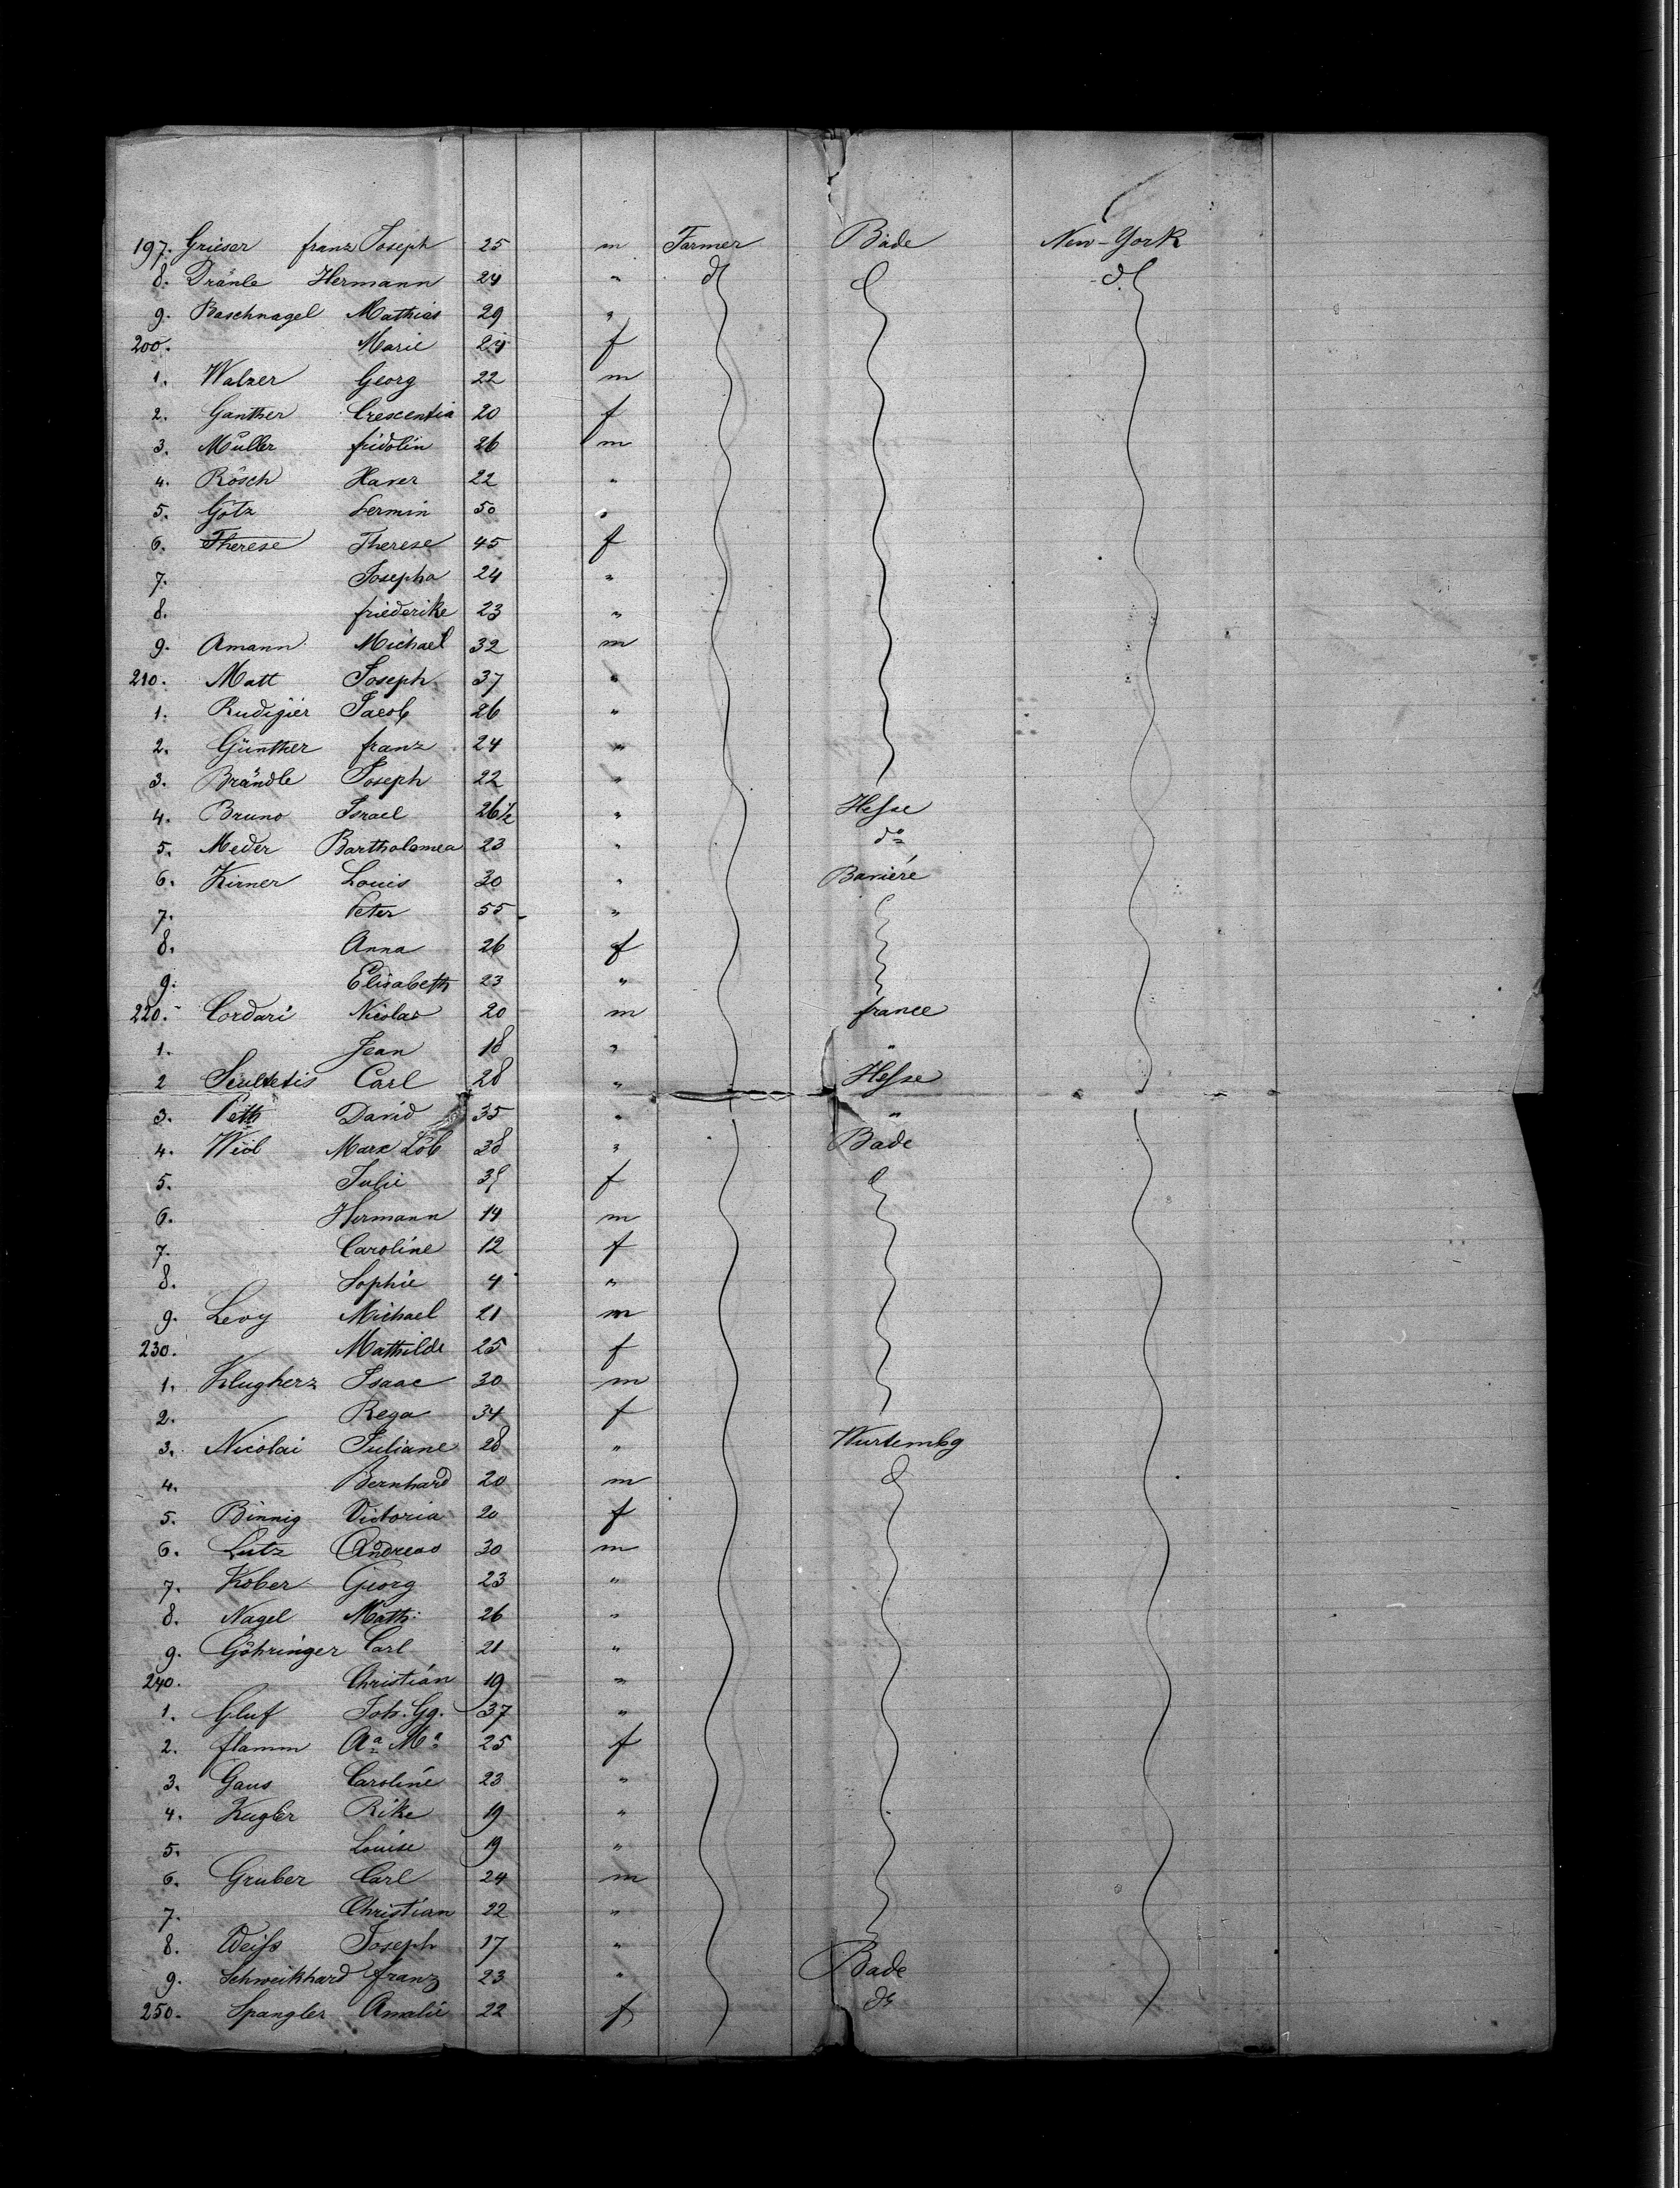 197. Grieser franz Joseph 25 m Farmer Bade New-York
8. Dränle Hermann 24 " d° d°
9. Baschnagel Mathias 29 "
200. Marie 24 f
1. Walzer Georg 22 m
2. Ganther Crescentia 20 f
3. Müller fridolin 26 m
4. Rösch Xaver 22 "
5. Götz Fermin 50 "
6. Therese Therese 45 f
7. Josepha 24 "
8. friederike 23 "
9. Amann Michael 32 m
210. Matt Joseph 37 "
1. Rudigier Jacob 26 "
2. Günther franz 24 "
3. Brändle Joseph 22 "
4. Bruno Israel 26½ " Hesse
5. Meder Bartholomea 23 " d°
6. Kirner Louis 30 " Bavière
7. Peter 55 "
8. Anna 26 f
9. Elisabeth 23 "
220. Cordari Nicolas 20 m france
1. Jean 18 " "
2 Scultetis Carl 28 " Hesse
3. Peth David 35 " "
4. Wiel Marx Löb 38 " Bade
5. Julie 39 f
6. Hermann 14 m
7. Caroline 12 f
8. Sophie 4 "
9. Levy Michael 21 m
230. Mathilde 25 f
1. Klugherz Isaac 30 m
2. Rega 34 f
3. Nicolai Juliane 28 " Wurtembg
4. Bernhard 20 m
5. Binnig Victoria 20 f
6. Lutz Andreas 30 m
7. Kober Georg 23 "
8. Nagel Math: 26 "
9. Göhringer Carl 21 "
240. Christian 19 "
1. Gluf Joh. Gg. 37 "
2. flamm Aª Mª 25 f
3. Gaus Caroline 23 "
4. Kugler Rike 19 "
5. Louise 19 "
6. Gruber Carl 24 m
7. Christian 22 "
8. Weiss Joseph 17 "
9. Schweikhard franz 23 " Bade
250. Spangler Amalie 22 f d°